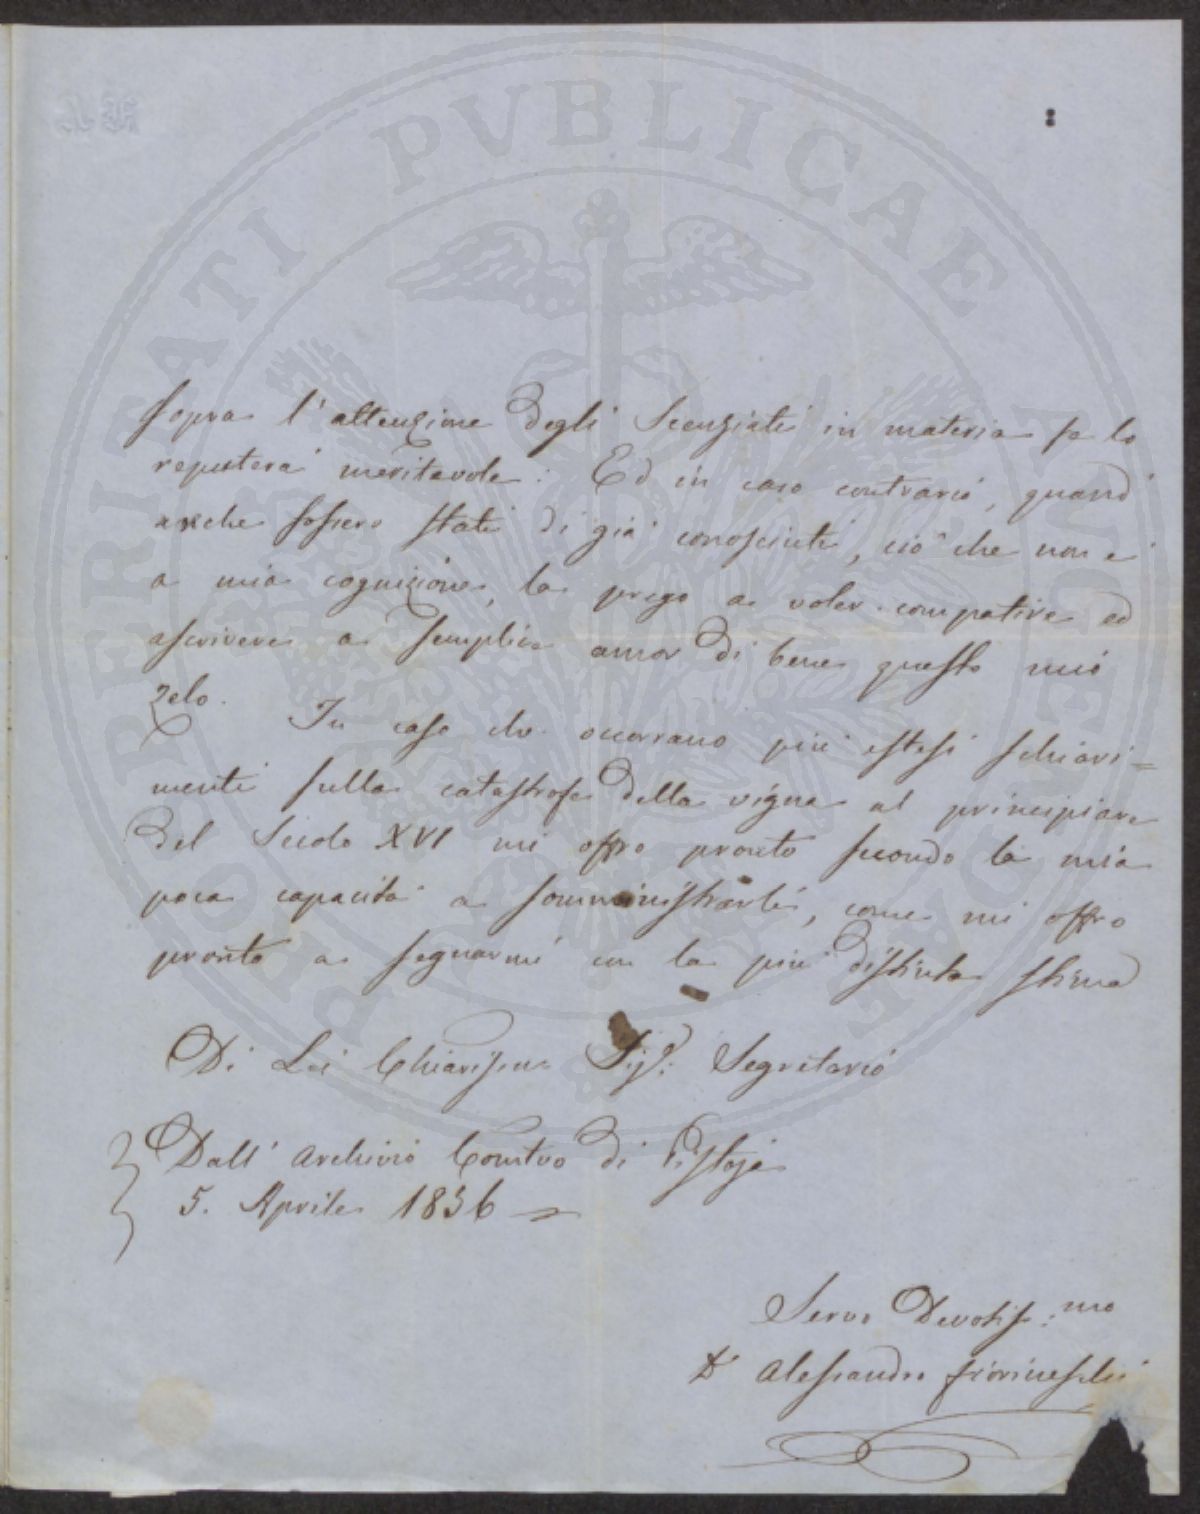 PROSPERITATI PVBLICAE AVGENDAE
sopra l'attenzione degli Scenziati in materia se lo
reputerà meritevole. Ed in caso contrario, quand'
anche fossero stati di già conosciuti, ciò che non è
a mia cognizione, la prego a voler compatire ed
ascrivere a semplice amor di bene questo mio
zelo. In caso che occorrano più estesi schiari=
menti sulla catastrofe della vigna al principiare
del Secolo XVI mi offro pronto secondo la mia
poca capacità a somministrarli, come mi offro
pronto a segnarmi con la più distinta stima
Di Lei Chiariss.mo Sig.e Segretario
Dall' Archivio Comtvo di Pistoja
5. Aprile 1856
Servo Devotiss:mo
Dr Alessandro Fiorineschi